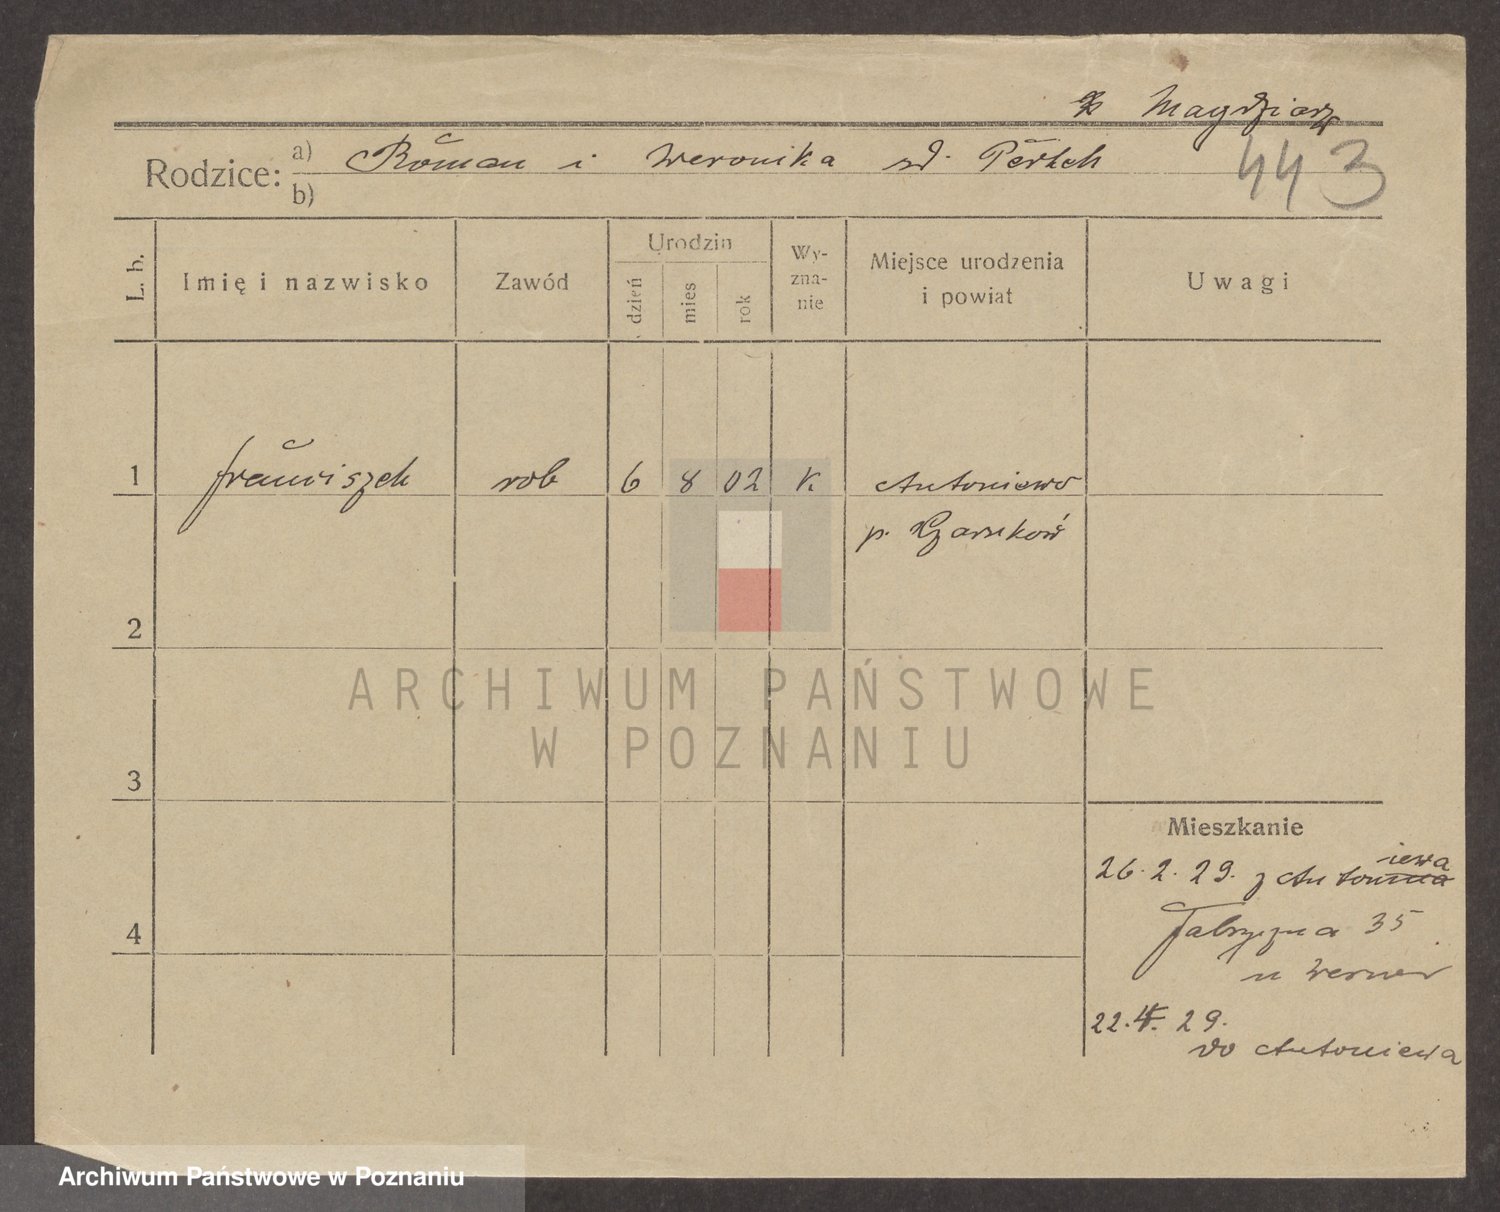 Magdziarz
Rodzice: a) Roman i Weronika
b)
443
L. b. Imię i nazwisko Zawód Urodzin dzień mies rok Wyznanie Miejsce urodzenia i powiat Uwagi
1 Franciszek rob 6 8 02 K Antoniewo
p. Czarnków
2
ARCHIWUM PAŃSTWOWE
W POZNANIU
3
Mieszkanie
iewa
26. 2. 29. z Anton
4
Fabryczna 35
u Werner
22. 29.
do Antoniewa
Archiwum Państwowe w Poznaniu